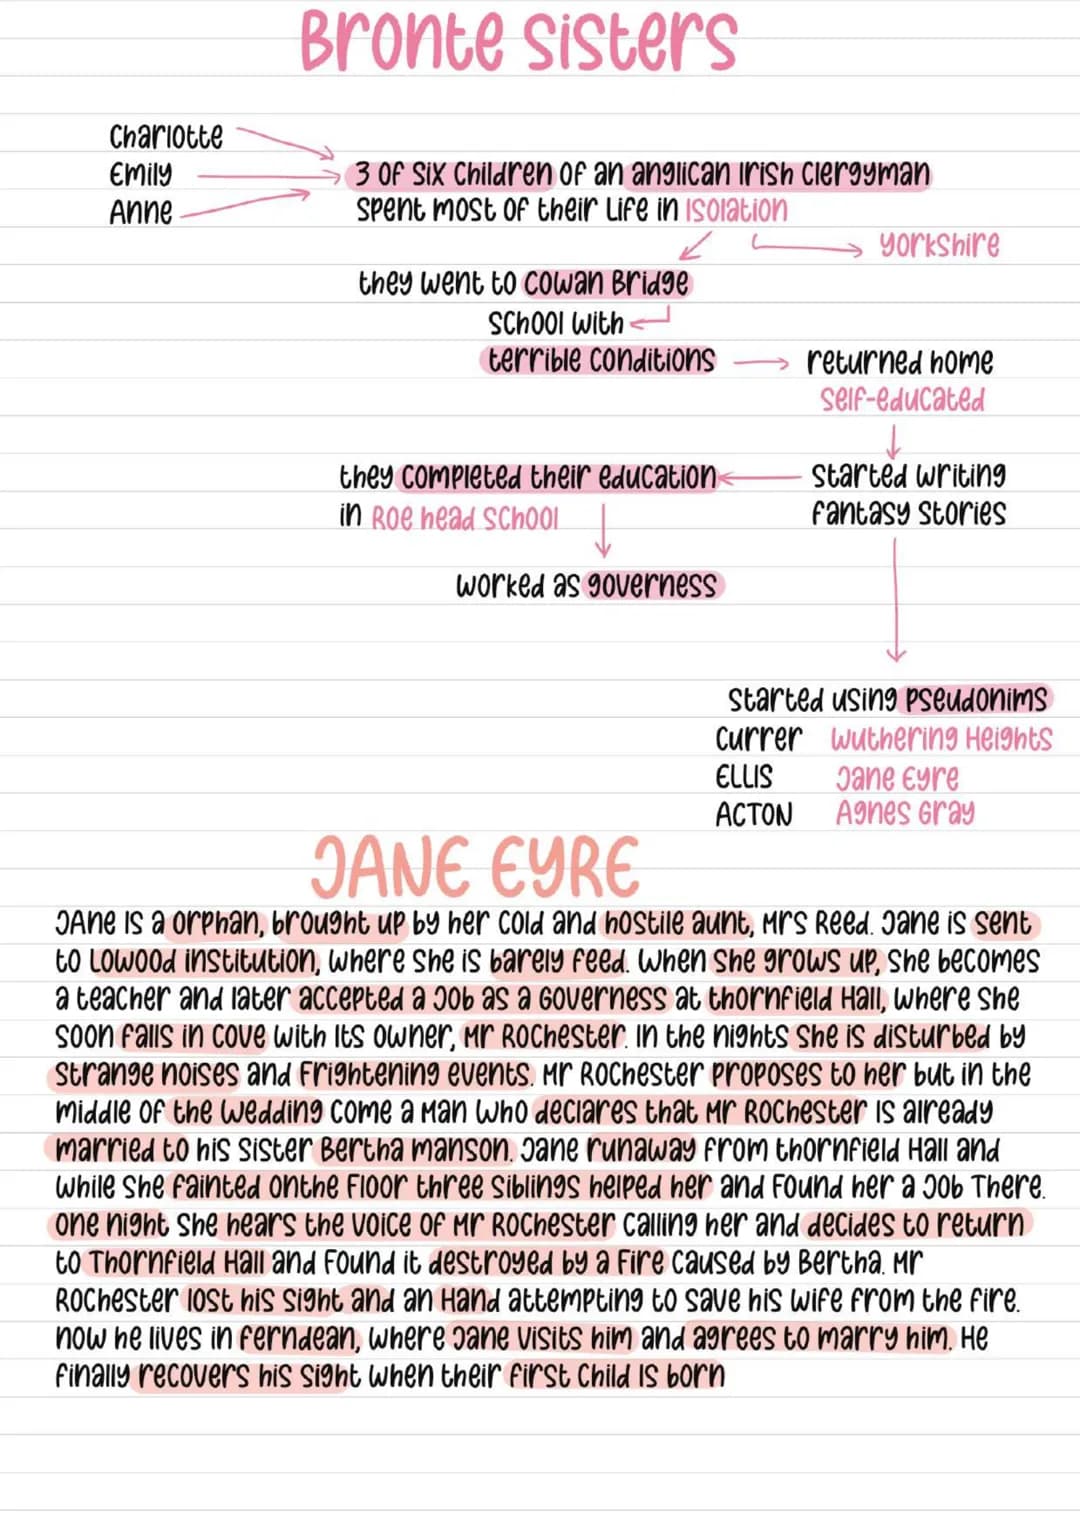 Bronte sisters
Charlotte
Emily
Anne
3 of six children of an anglican irish clergyman
spent most of their life in isolation
yorkshire
they went to cowan Bridge
school with
terrible conditions
returned home
self-educated
they completed their education
in Roe head school
started writing
fantasy stories
worked as governess
started using pseudonims
Currer Wuthering Heights
ELLIS Jane Eyre
ACTON Agnes Gray
JANE EYRE
Jane is a orphan, brought up by her cold and hostile aunt, Mrs Reed. Jane is sent
to Lowood institution, where she is barely feed. When she grows up, she becomes
a teacher and later accepted a job as a governess at thornfield Hall, where she
soon falls in cove with its owner, Mr Rochester. In the nights she is disturbed by
strange noises and frightening events. Mr Rochester proposes to her but in the
middle of the wedding come a man who declares that Mr Rochester is already
married to his sister Bertha manson. Jane runaway from thornfield Hall and
while she fainted onthe floor three siblings helped her and found her a job There.
one night she hears the voice of Mr Rochester calling her and decides to return
to Thornfield Hall and found it destroyed by a fire caused by Bertha. Mr
Rochester lost his sight and an Hand attempting to save his wife from the fire.
now he lives in ferndean, where Jane visits him and agrees to marry him. He
finally recovers his sight when their first child is born